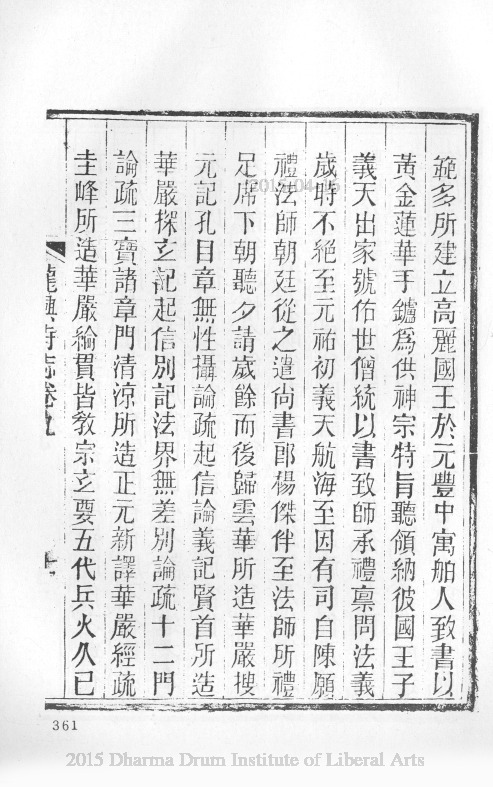 範多所建立高麗國王於元豐中寓舶人致書以
黃金蓮華手鑪爲供神宗特旨聽領納彼國王子
義天出家號佑世僧統以書致師承禮稟問法義
歲時不絕至元祐初義天航海至因有司自陳願
禮法師朝廷從之遣尚書郎楊傑伴至法師所禮
足席下朝聽夕請歲餘而後歸雲華所造華嚴搜
元記孔目章無性攝論疏起信論義記賢首所造
華嚴探玄記起信別記法界無差別論疏十二門
論疏三寶諸章門清涼所造正元新譯華嚴經疏
圭峰所造華嚴綸貫皆敎宗玄要五代兵火久已
龍興寺志卷九
2015/04/16
361
2015 Dharma Drum Institute of Liberal Arts